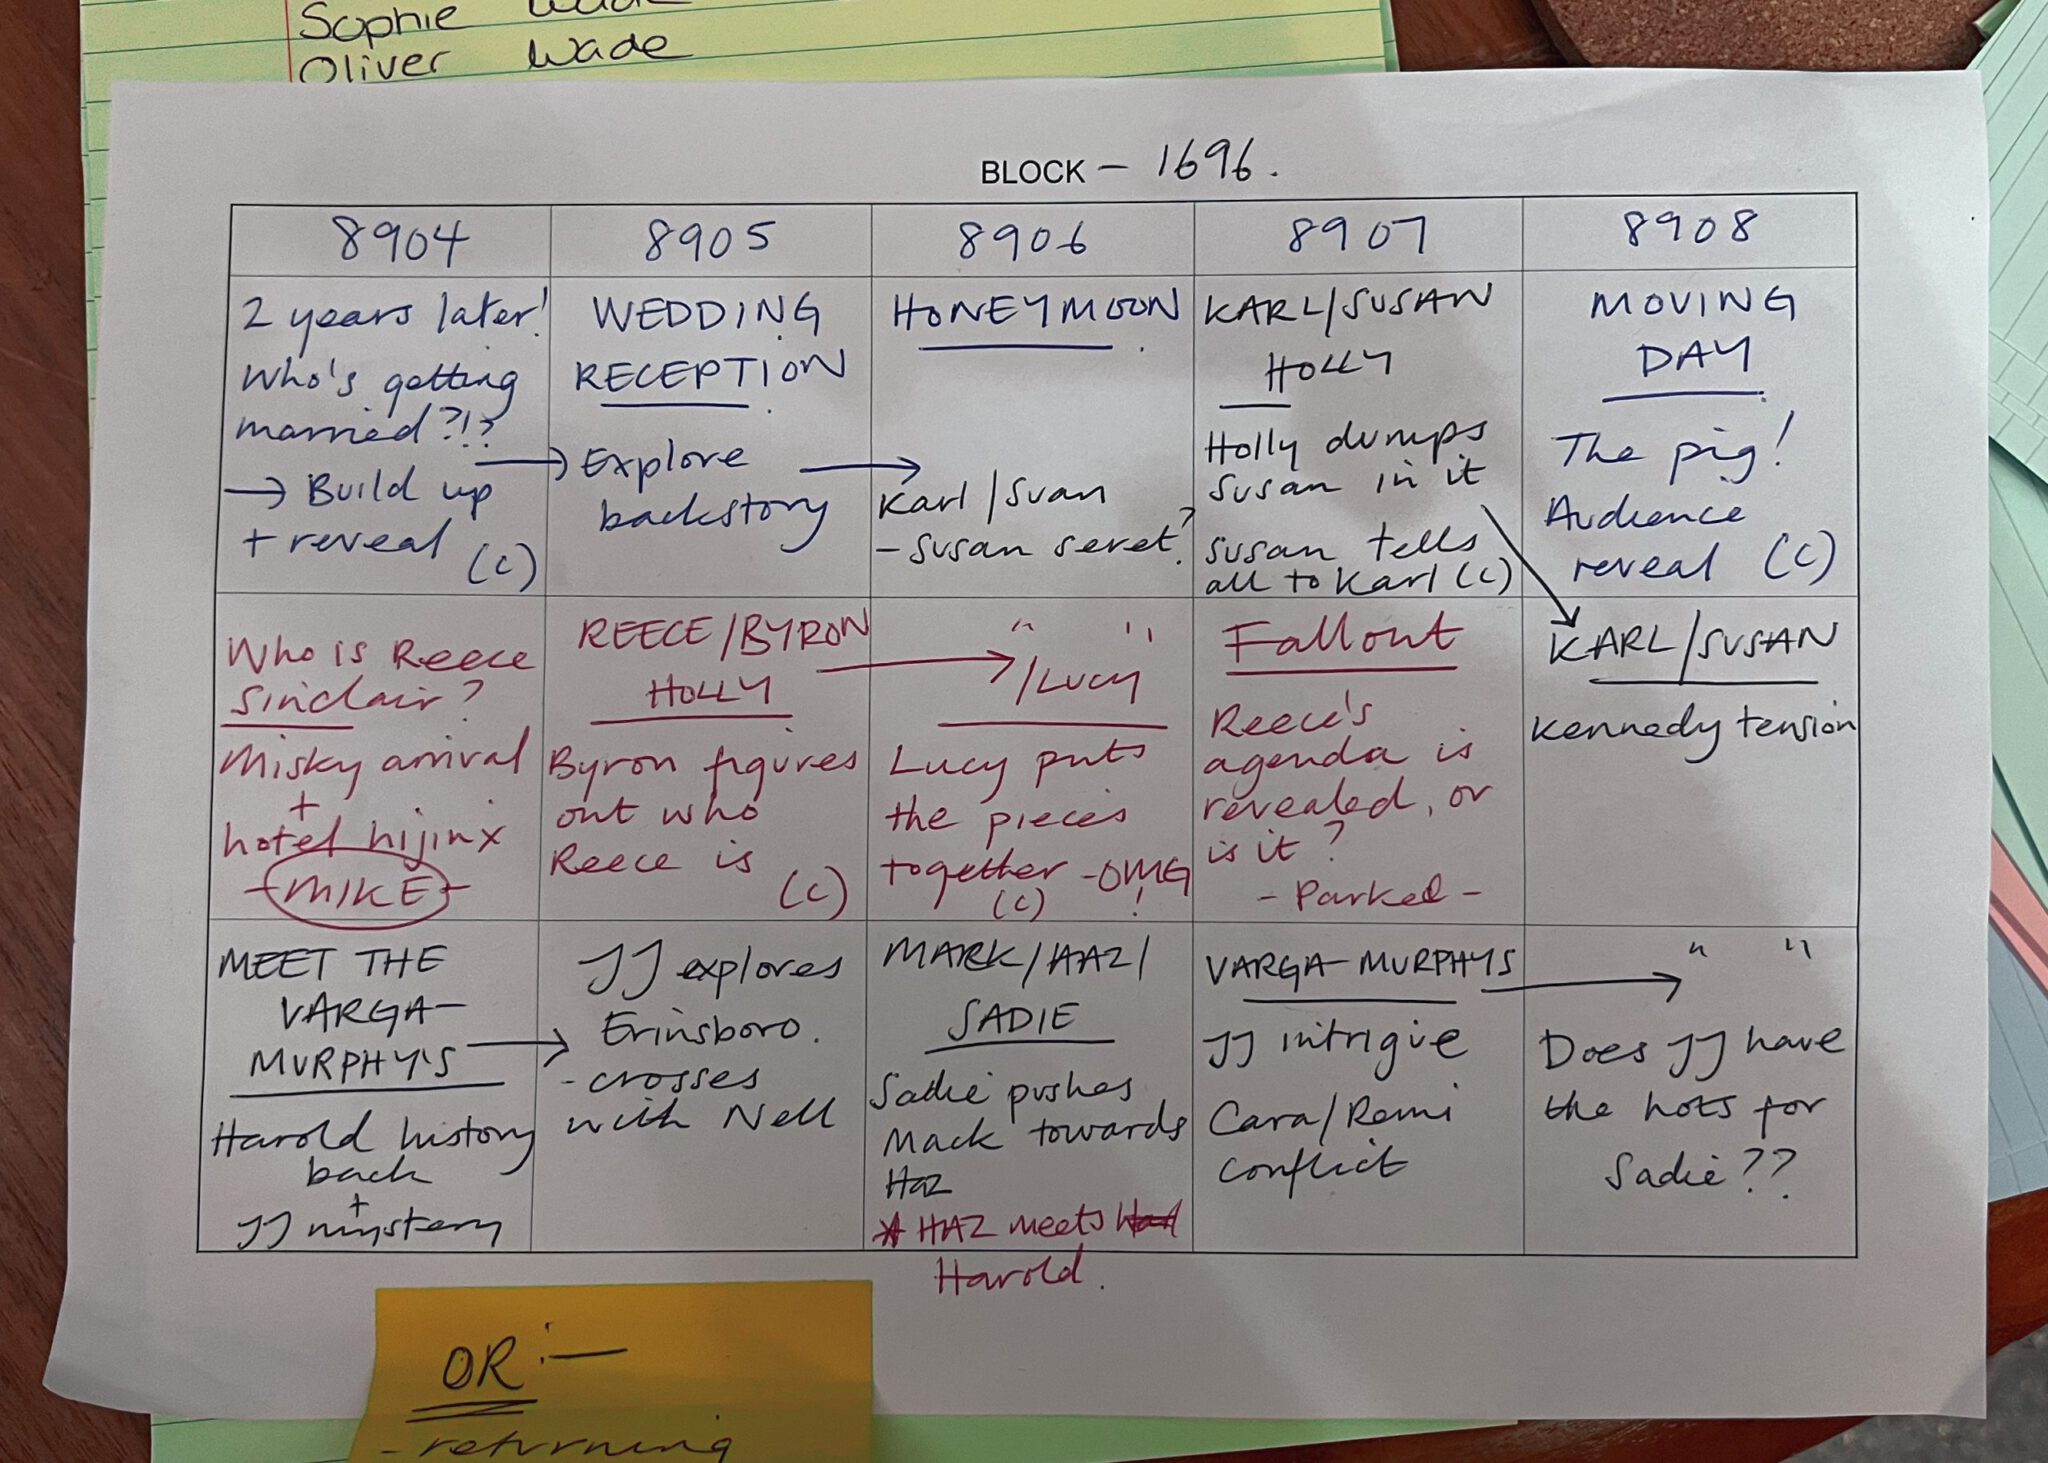 Sophie
Oliver Wade
BLOCK – 1696.
8904
8905
8906
8907
8908
2 years later!
Who's getting
married?!?
→ Build up
+ reveal (c)
WEDDING
RECEPTION
Explore
backstory
HONEYMOON
Karl/Suan
- Susan seret?
KARL/SUSAN
HOLLY
Holly dumps
Susan in it
Susan tells
all to Karl (c)
MOVING
DAY
The pig!
Audience
reveal (c)
Who is Reece
Sinclair?
Misky arrival
+
hotel hijinx
- MIKE -
REECE/BYRON
HOLLY
Byron figures
out who
Reece is
(c)
" "
/LUCY
Lucy puts
the pieces
together - OMG
(c) !
Fallout
Reece's
agenda is
revealed, or
is it?
- Parked -
KARL/SUSAN
Kennedy tension
MEET THE
VARGA-
MURPHY'S
Harold history
back
+
JJ mystery
JJ explores
Erinsboro.
- crosses
with Nell
MARK/HAZ/
SADIE
Sadie pushes
Mack towards
Haz
* HAZ meets
Harold.
VARGA-MURPHYS
JJ intrigue
Cara/Remi
conflict
" "
Does JJ have
the hots for
Sadie??
OR:—
- returning